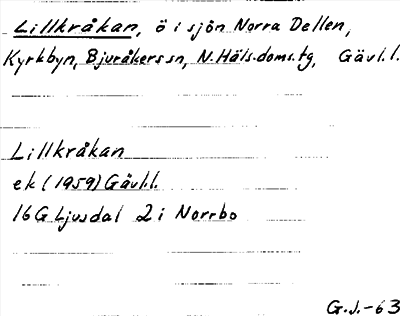 Lillkråkan, ö i sjön Norra Dellen,
Kyrkbyn, Bjuråkers sn, N. Häls. doms. tg, Gävl. l.
Lillkråkan
ek (1959) Gävl.l.
16 G Ljusdal 2 i Norrbo
G.J.-63